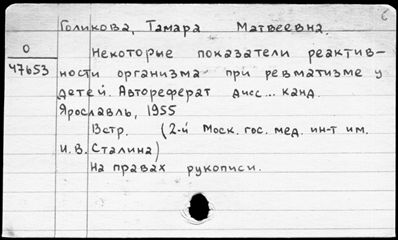 с
Голикова, Тамара Матвеевна.
О
47653
Некоторые показатели реактив-
ности организма при ревматизме у
детей. Автореферат дисс... канд.
Ярославль, 1955
Встр. (2-й Моск. гос. мед. ин-т им.
И.В. Сталина)
На правах рукописи.